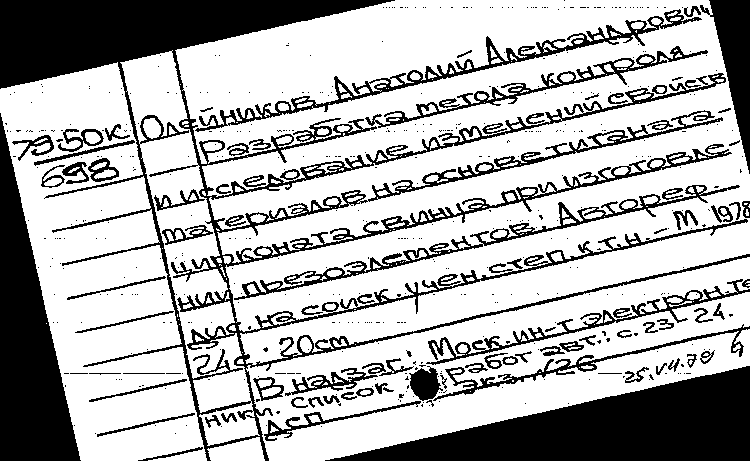 79.50к
698
Олейников, Анатолий Александрович
Разработка метода контроля
и исследование изменений свойств
материалов на основе титаната-
цирконата свинца при изготовле-
нии пьезоэлементов: Автореф.
дис. на соиск. учен. степ. к.т.н. – М., 1978
24с.; 20см.
В надзаг.: Моск. ин-т электрон. те
ники. Список работ авт.: с. 23-24.
ДСП экз. №26
25.VII.78